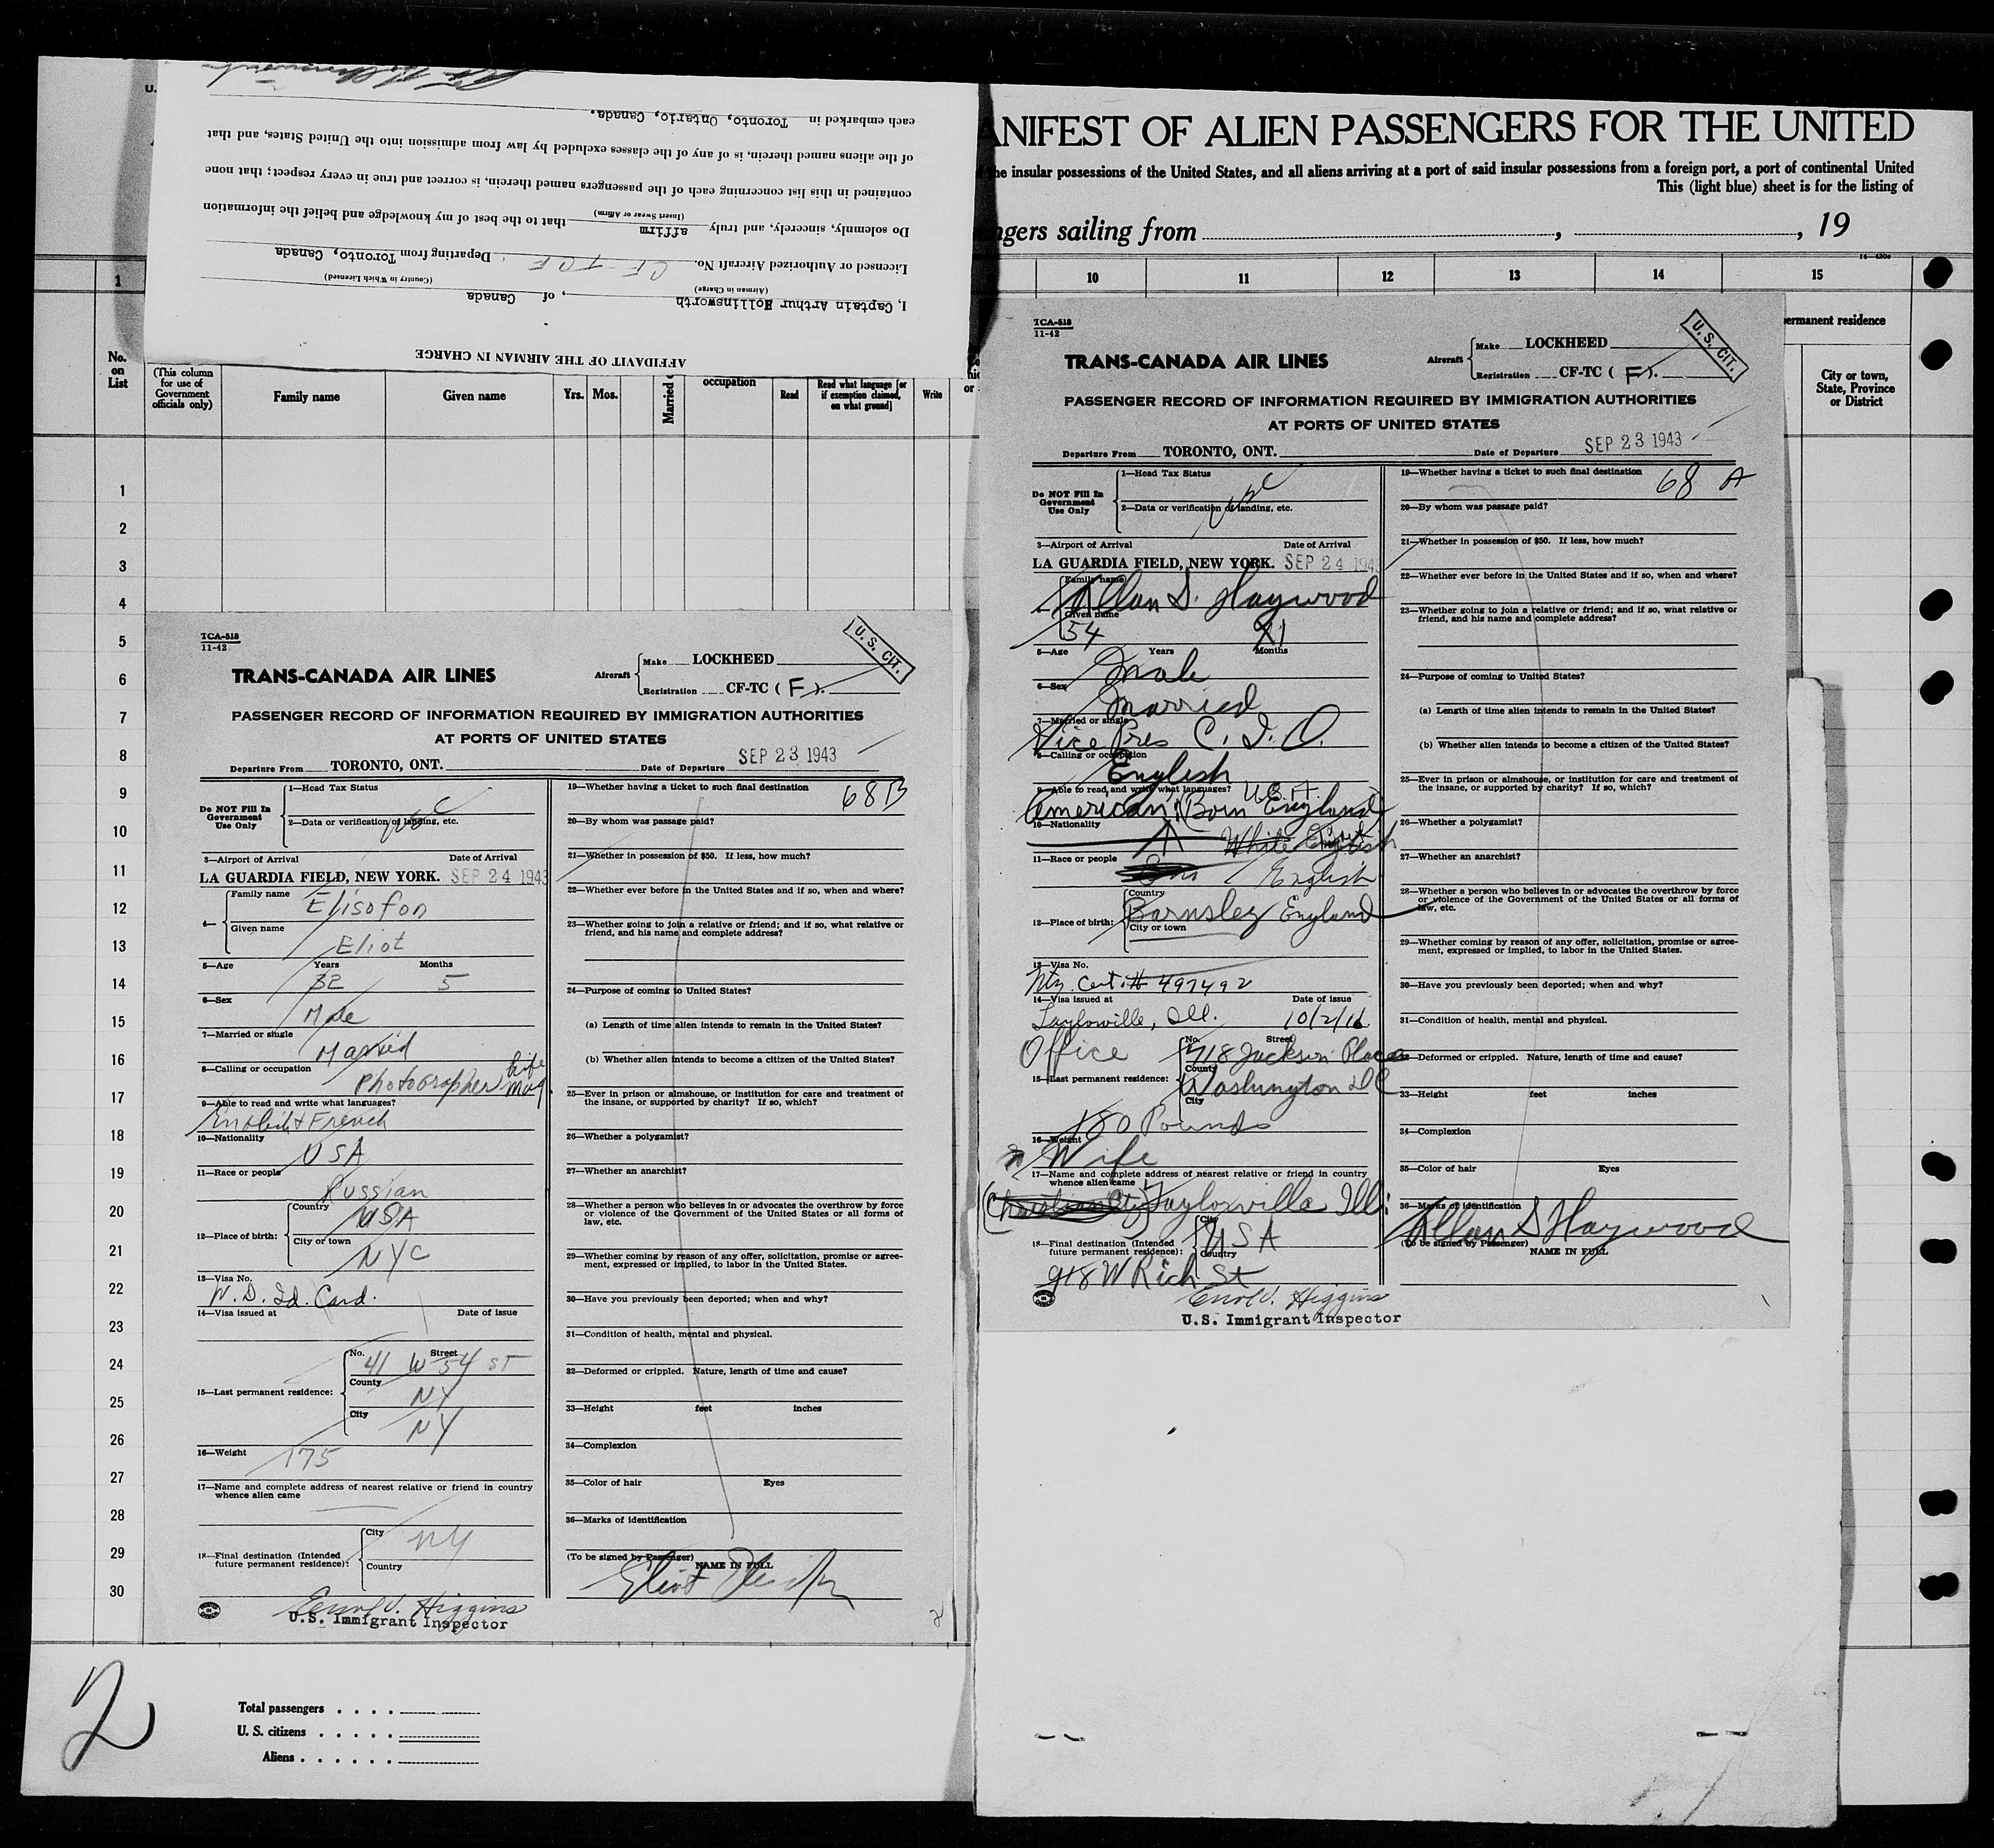 AFFIDAVIT OF THE AIRMAN IN CHARGE
I, Captain Arthur Hollinsworth, of Canada
(Airman in Charge) (Country in Which Licensed)
Licensed or Authorized Aircraft No. CF-TCF. Departing from Toronto, Canada
Do solemnly, sincerely, and truly affirm that to the best of my knowledge and belief the information
(Insert Swear or Affirm)
contained in this list concerning each of the passengers named therein, is correct and true in every respect; that none
of the aliens named therein, is of any of the classes excluded by law from admission into the United States, and that
each embarked in Toronto, Ontario, Canada.
U.
ANIFEST OF ALIEN PASSENGERS FOR THE UNITED
he insular possessions of the United States, and all aliens arriving at a port of said insular possessions from a foreign port, a port of continental United
This (light blue) sheet is for the listing of
ngers sailing from , , 19
1 10 11 12 13 14 15
No. on List
(This column for use of Government officials only)
Family name
Given name
Yrs. Mos.
Married o
occupation
Read
Read what language [or if exemption claimed, on what ground]
Write
ermanent residence
City or town, State, Province or District
1
2
3
4
5
6
7
8
9
10
11
12
13
14
15
16
17
18
19
20
21
22
23
24
25
26
27
28
29
30
TCA-518
11-42
TRANS-CANADA AIR LINES
Aircraft
Make LOCKHEED
Registration CF-TC (F).
U. S. CIT.
PASSENGER RECORD OF INFORMATION REQUIRED BY IMMIGRATION AUTHORITIES
AT PORTS OF UNITED STATES
Departure From TORONTO, ONT. Date of Departure SEP 23 1943
Do NOT Fill In Government Use Only
1—Head Tax Status
USC
2—Data or verification of landing, etc.
3—Airport of Arrival Date of Arrival
LA GUARDIA FIELD, NEW YORK. SEP 24 1943
4— Family name Elisofon
Given name Eliot
5—Age Years Months
32 5
6—Sex
Male
7—Married or single
Married
8—Calling or occupation
Photographer Life Mag.
9—Able to read and write what languages?
English & French
10—Nationality
USA
11—Race or people
Russian
12—Place of birth: Country USA
City or town
NYC
13—Visa No.
W.D. Id. Card.
14—Visa issued at Date of issue
15—Last permanent residence: No. Street
41 W 54 ST
County
NY
City
NY
16—Weight
175
17—Name and complete address of nearest relative or friend in country whence alien came
18—Final destination (Intended future permanent residence): City
NY
Country
Errol J. Higgins
U.S. Immigrant Inspector
19—Whether having a ticket to such final destination 68B
20—By whom was passage paid?
21—Whether in possession of $50. If less, how much?
22—Whether ever before in the United States and if so, when and where?
23—Whether going to join a relative or friend; and if so, what relative or friend, and his name and complete address?
24—Purpose of coming to United States?
(a) Length of time alien intends to remain in the United States?
(b) Whether alien intends to become a citizen of the United States?
25—Ever in prison or almshouse, or institution for care and treatment of the insane, or supported by charity? If so, which?
26—Whether a polygamist?
27—Whether an anarchist?
28—Whether a person who believes in or advocates the overthrow by force or violence of the Government of the United States or all forms of law, etc.
29—Whether coming by reason of any offer, solicitation, promise or agreement, expressed or implied, to labor in the United States.
30—Have you previously been deported; when and why?
31—Condition of health, mental and physical.
32—Deformed or crippled. Nature, length of time and cause?
33—Height feet inches
34—Complexion
35—Color of hair Eyes
36—Marks of identification
(To be signed by Passenger) NAME IN FULL
Eliot Elisofon
2
Total passengers
U. S. citizens
Aliens
2
TCA-518
11-42
TRANS-CANADA AIR LINES
Aircraft
Make LOCKHEED
Registration CF-TC (F).
U. S. CIT.
PASSENGER RECORD OF INFORMATION REQUIRED BY IMMIGRATION AUTHORITIES
AT PORTS OF UNITED STATES
Departure From TORONTO, ONT. Date of Departure SEP 23 1943
Do NOT Fill In Government Use Only
1—Head Tax Status
USC
2—Data or verification of landing, etc.
3—Airport of Arrival Date of Arrival
LA GUARDIA FIELD, NEW YORK. SEP 24 1943
Family name
Allan S. Haywood
Given name
54 11
5—Age Years Months
Male
6—Sex
Married
7—Married or single
Vice Pres C. I. O.
8—Calling or occupation
English
9—Able to read and write what languages?
American, (Born England U.S.A.
10—Nationality
White English
11—Race or people
English
12—Place of birth: Country
Barnsley England
City or town
13—Visa No.
Ntz. Cert. # 497492
14—Visa issued at Date of issue
Taylorville, Ill. 10/2/16
Office
15—Last permanent residence: No. Street
718 Jackson Place
County
Washington DC
City
180 Pounds
16—Weight
Wife
17—Name and complete address of nearest relative or friend in country whence alien came
(Christian Cty) Taylorville Ill:
18—Final destination (Intended future permanent residence): City
USA
Country
918 W Rich St
Errol J. Higgins
U.S. Immigrant Inspector
19—Whether having a ticket to such final destination 68 A
20—By whom was passage paid?
21—Whether in possession of $50. If less, how much?
22—Whether ever before in the United States and if so, when and where?
23—Whether going to join a relative or friend; and if so, what relative or friend, and his name and complete address?
24—Purpose of coming to United States?
(a) Length of time alien intends to remain in the United States?
(b) Whether alien intends to become a citizen of the United States?
25—Ever in prison or almshouse, or institution for care and treatment of the insane, or supported by charity? If so, which?
26—Whether a polygamist?
27—Whether an anarchist?
28—Whether a person who believes in or advocates the overthrow by force or violence of the Government of the United States or all forms of law, etc.
29—Whether coming by reason of any offer, solicitation, promise or agreement, expressed or implied, to labor in the United States.
30—Have you previously been deported; when and why?
31—Condition of health, mental and physical.
Deformed or crippled. Nature, length of time and cause?
33—Height feet inches
34—Complexion
35—Color of hair Eyes
36—Marks of identification
Allan S Haywood
(To be signed by Passenger) NAME IN FULL